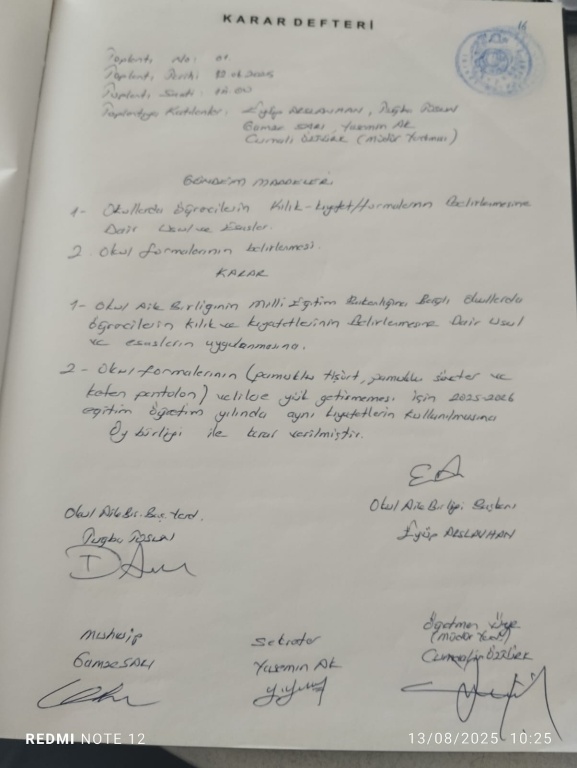 16
KARAR DEFTERİ
Toplantı No: 01
Toplantı Tarihi
Toplantı Saati
Toplantıya Katılanlar: Eyüp ARSLANHAN, Tuğba
Gamze SARI, Yasemin AK
ÖZTÜRK (Müdür Yardımcısı)
GÜNDEM MADDELERİ
1- Okullarda Öğrencilerin Kılık-kıyafet/formalarının Belirlenmesine
Dair Usul ve Esaslar.
2. Okul formalarının belirlenmesi.
KARAR
1- Okul Aile Birliğinin Milli Eğitim Bakanlığına Bağlı Okullarda
öğrencilerin kılık ve kıyafetlerinin Belirlenmesine Dair Usul
ve esasların uygulanmasına.
2- Okul formalarının (pamuklu tişört, pamuklu ve
keten pantolon) velilere yük getirmemesi için 2025-2026
eğitim öğretim yılında aynı kıyafetlerin kullanılmasına
Oy birliği ile karar verilmiştir.
EA
Okul Aile Bir. Baş. Yard.
Okul Aile Birliği Başkanı
Tuğba
Eyüp ARSLANHAN
Öğretmen Üye
(Müdür Yard.)
Gamze SARI
Sekreter
Yasemin AK
ÖZTÜRK
REDMI NOTE 12
13/08/2025 10:25